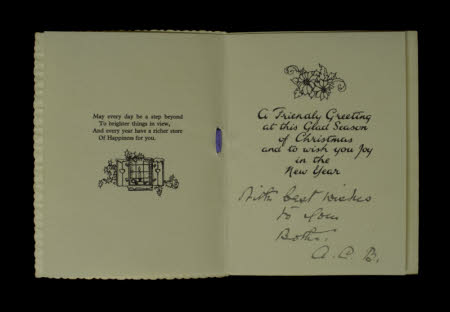 May every day be a step beyond
To brighter things in view,
And every year have a richer store
Of Happiness for you.
A Friendly Greeting
at this Glad Season
of Christmas
and to wish you Joy
in the
New Year
With best wishes
to you
Both.
A. C. B.